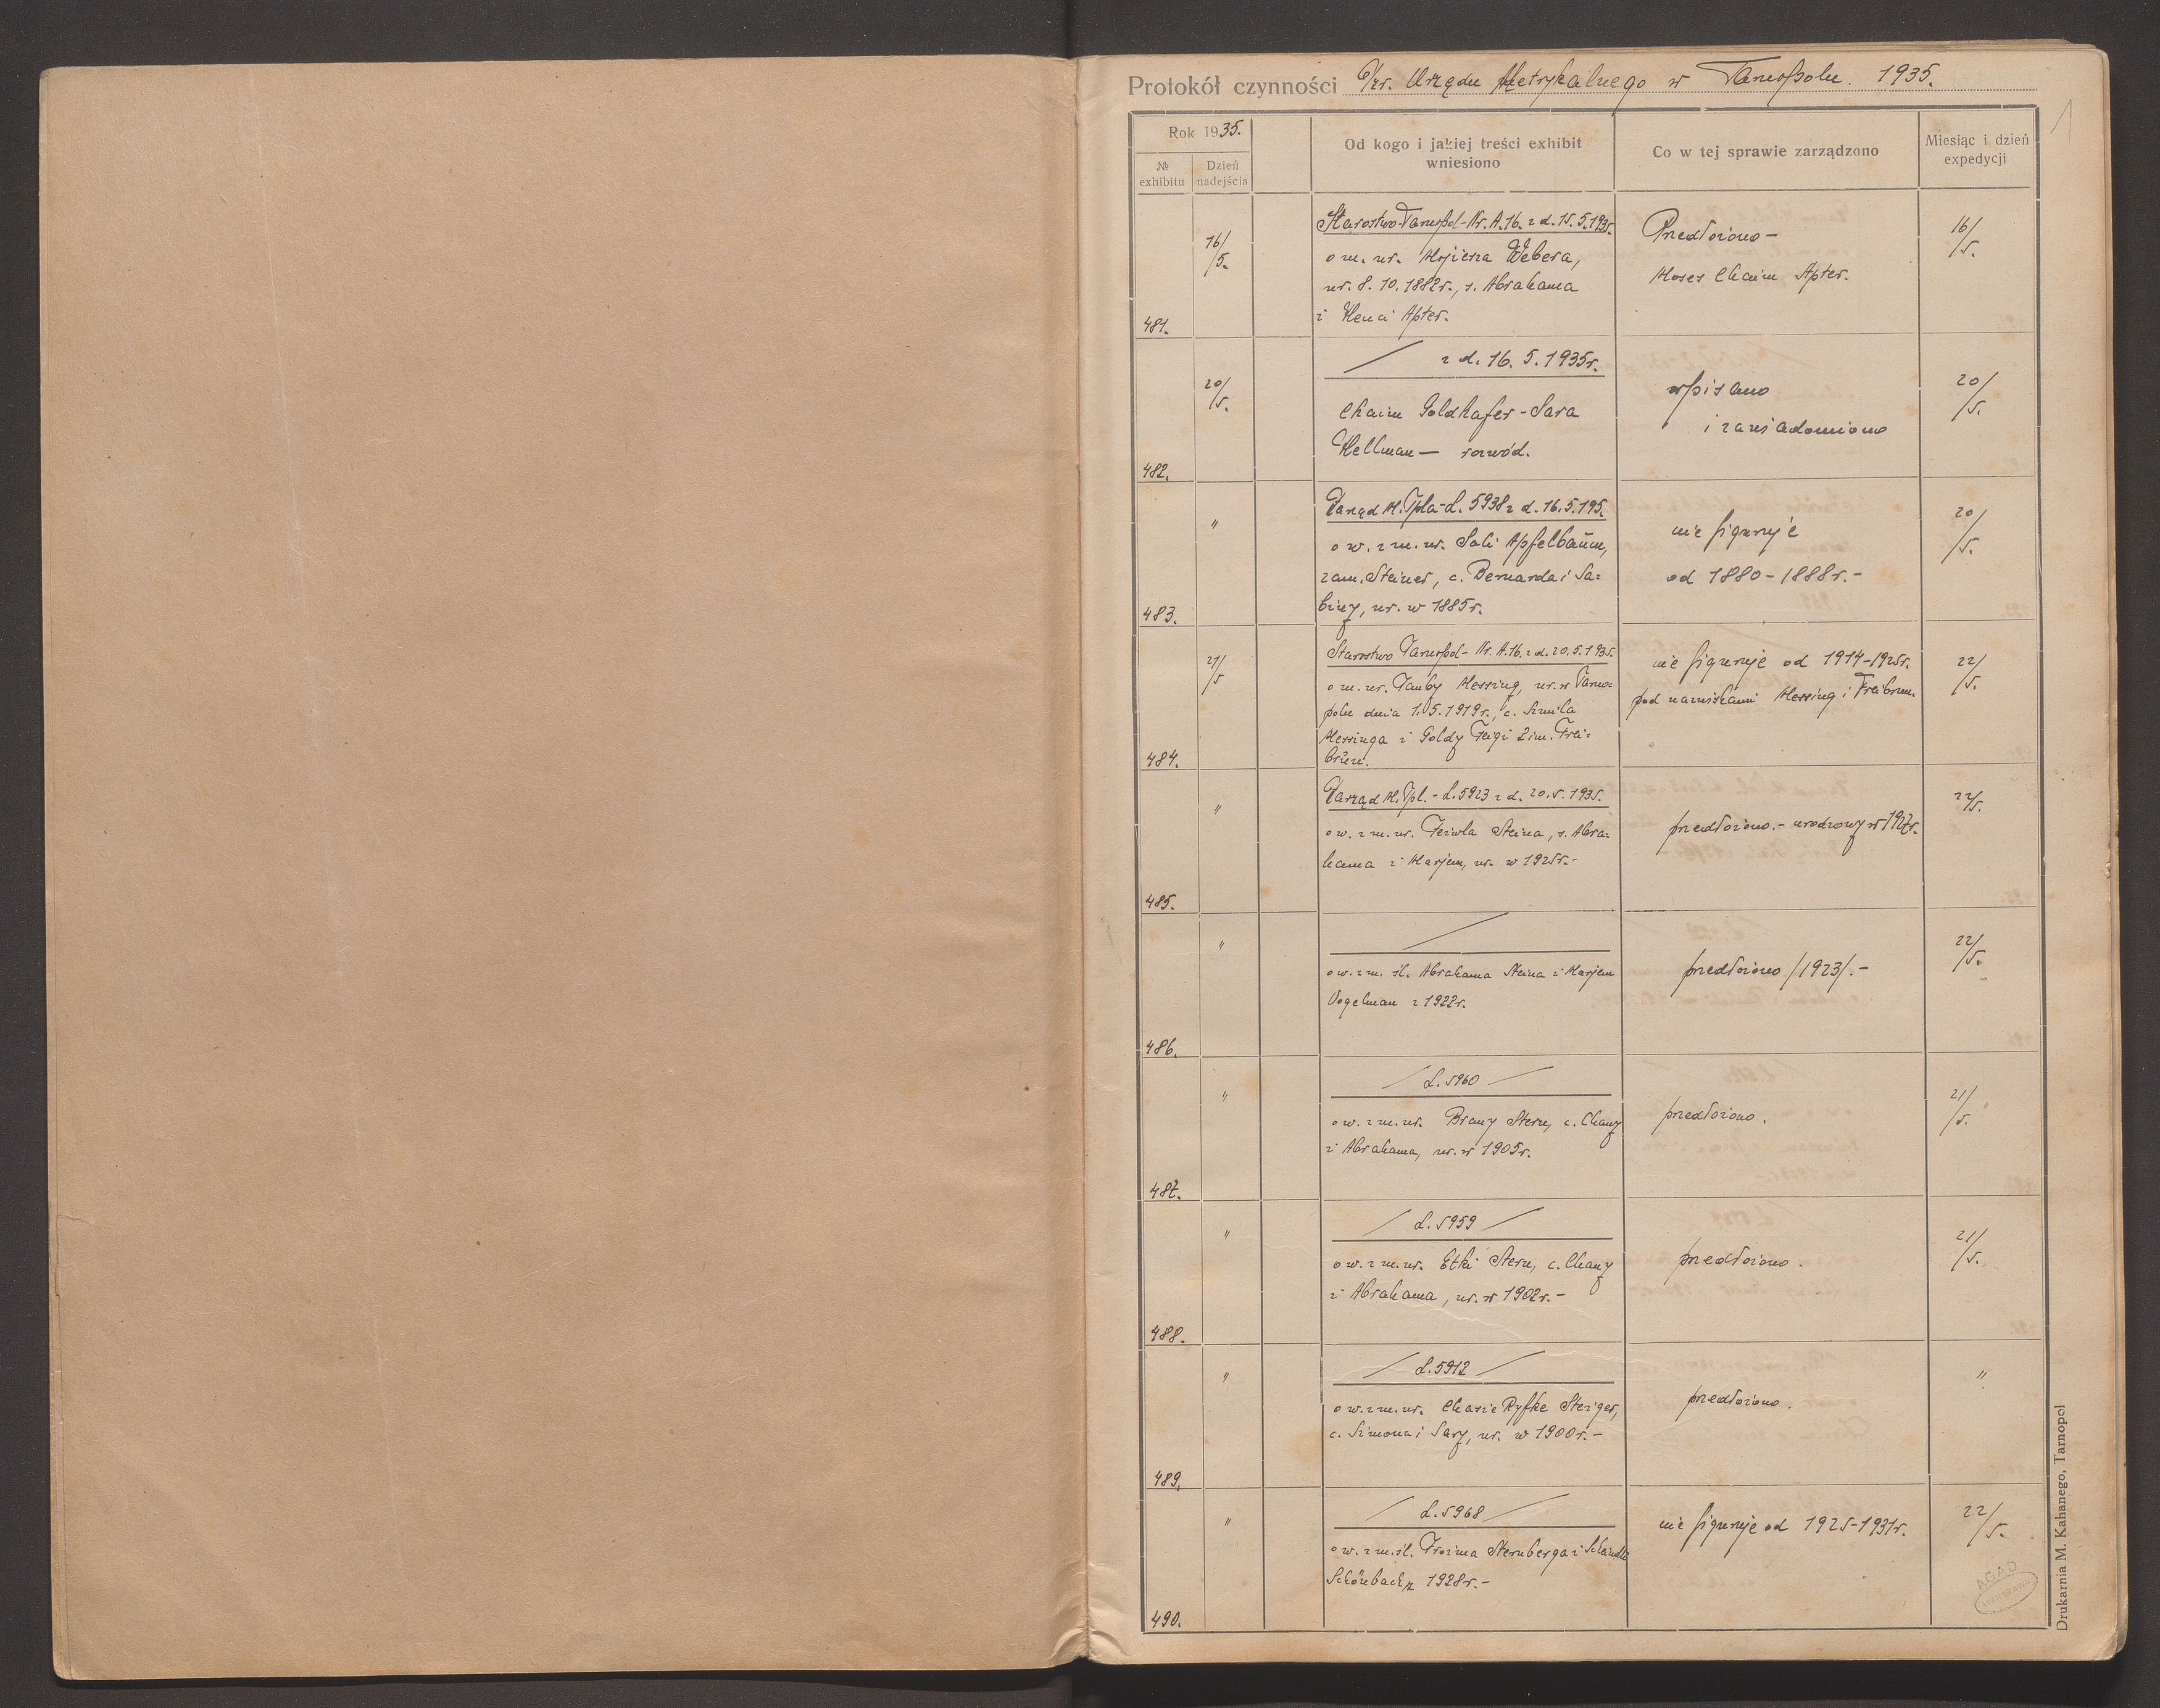 Protokół czynności Izr. Urzędu Metrykalnego w Tarnopolu. 1935.
1
Rok 1935.
№ exhibitu
Dzień nadejścia
Od kogo i jakiej treści exhibit
wniesiono
Co w tej sprawie zarządzono
Miesiąc i dzień
expedycji
481.
16/5.
Starostwo Tarnopol - Nr. A.16. z d. 15.5.1935.
o m. ur. Mojżesza Webera,
ur. 8. 10. 1882r., s. Abrahama
i Henci Apter.
Przedłożono -
Moses Chaim Apter.
16/5.
482.
20/5.
z d. 16. 5. 1935r.
Chaim Goldhafer - Sara
Hellman — rozwód.
wpisano
i zawiadomiono
20/5.
483.
"
Zarząd M. Tpla - L. 5938 z d. 16.5.195.
o w. z m. ur. Sali Apfelbaum,
zam. Steiner, c. Bernarda i Sa-
biny, ur. w 1885r.
nie figuruje
od 1880 - 1888r. -
20/5.
484.
21/5
Starostwo Tarnopol - Nr. A.16. z d. 20.5.1935.
o m. ur. Tauby Messing, ur. w Tarno-
polu dnia 1.5.1919r., c. Szmila
Messinga i Goldy Feigi 2im. Frei-
brun.
nie figuruje od 1914-1925r.
pod nazwiskami Messing i Freibrun.
22/5.
485.
"
Zarząd M. Tpl. - L. 5923 z d. 20.5.1935.
o w. z m. ur. Feiwla Steina, s. Abra-
hama i Marjem, ur. w 1925r. -
przedłożono. - urodzony w 1927r.
22/5.
486.
"
o w. z m. śl. Abrahama Steina i Marjem
Vogelman z 1922r.
przedłożono /1923/. -
22/5.
487.
"
L. 5960
o w. z m. ur. Brany Stern, c. Chany
i Abrahama, ur. w 1905r.
przedłożono.
21/5.
488.
"
L. 5959
o w. z m. ur. Etki Stern, c. Chany
i Abrahama, ur. w 1902r. -
przedłożono.
21/5.
489.
"
L. 5912
o w. z m. ur. Chasie Ryfke Steiger,
c. Simona i Sary, ur. w 1900r. -
przedłożono.
"
490.
"
L. 5968
o w. z m. śl. Froima Sternberga i Scheindli
Schönbach z 1928r. -
nie figuruje od 1925-1931r.
22/5.
AGAD
Drukarnia M. Kahanego, Tarnopol